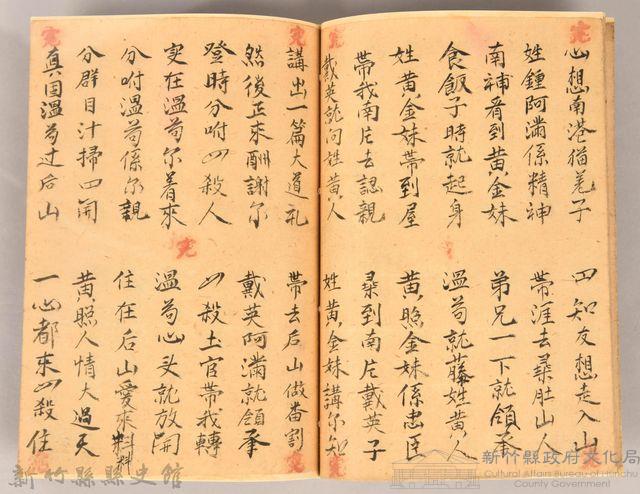 心想南港猫尾子
四知友想走入山
姓鍾阿滿係精神
帶涯去尋肚山人
南補看到黃金妹
弟兄一下就領
食飯子時就起身
溫苟就 姓黃人
姓黃金妹帶到屋
黃照金妹係忠臣
帶我南片去認親
尋到南片戴英子
戴英就问姓黃人
姓黃金妹講尔知
講出一篇大道礼
帶去后山做番割
然後正來酬謝尔
戴英阿滿就領
登時分咐凶殺人
凶殺土官帶我轉
实在溫苟尔着來
溫苟心头就放開
分咐溫苟係尔親
住在后山愛來料料
分群目汁掃四開
黃照人情大過天
真因溫苟过后山
一心都來凶殺住
新竹縣縣史館
新竹縣政府文化局
Cultural Affairs Bureau of Hsinchu
County Government